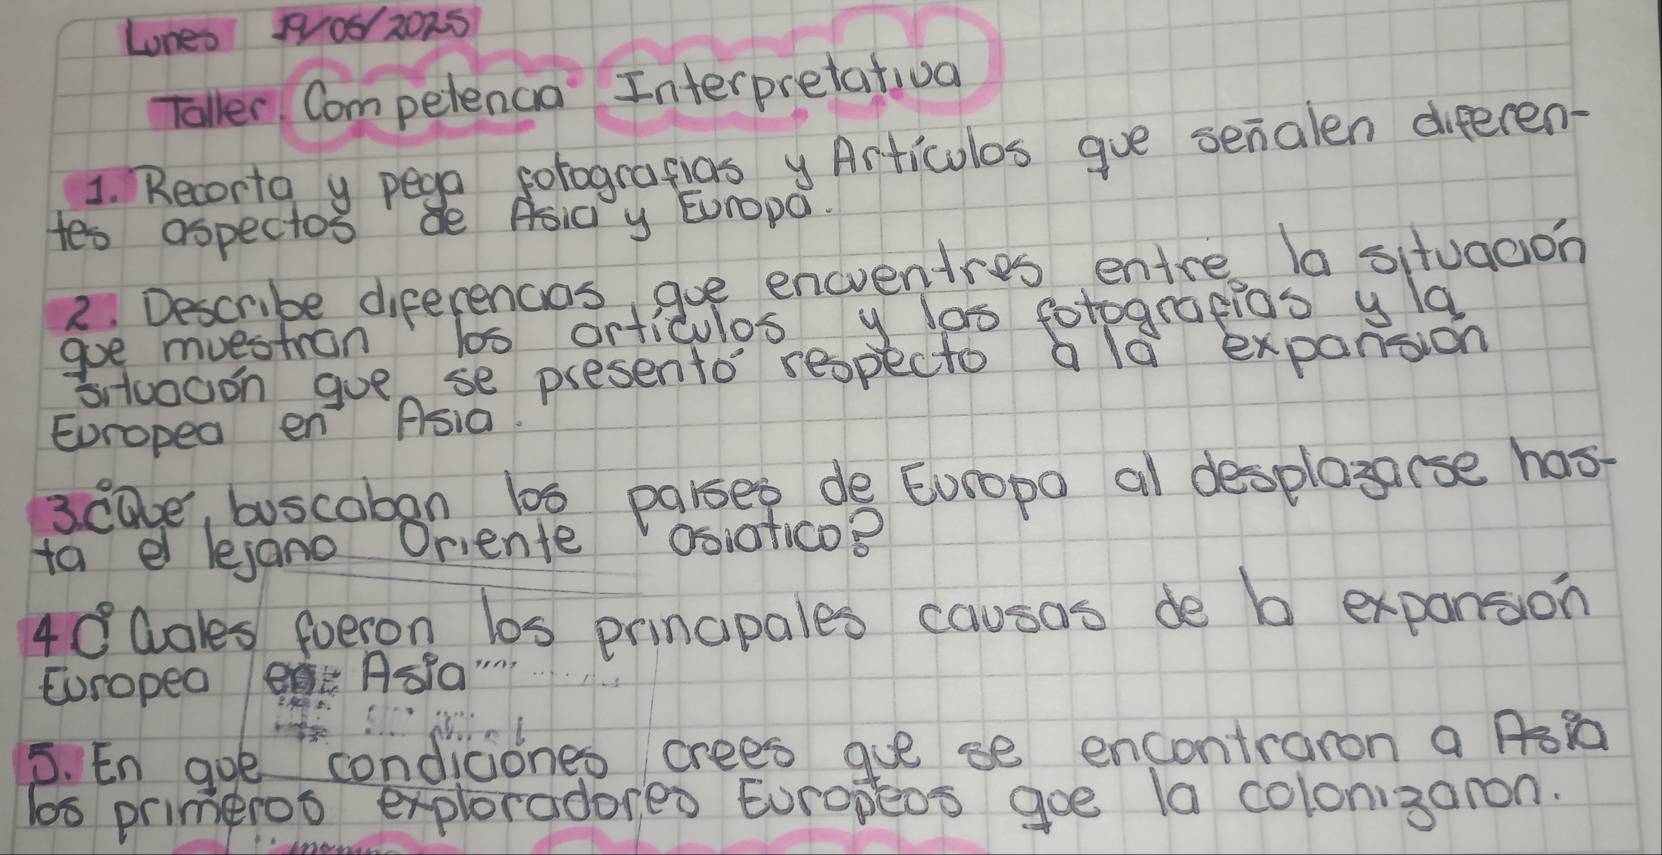 Lunes 19/05/2025
Taller. Competencia Interpretativa
1. Recorta y pega fotografias y Artículos que señalen diferen-
tes aspectos de Asia y Europa.
2. Describe diferencias que encuentres entre la situación
que muestran los artículos y las fotografías y la
situación que se presentó respecto a la expansión
Europea en Asia.
3. ¿Qué buscaban los paises de Europa al desplazarse has-
ta el lejano Oriente asiatico?
4 ¿Cuales fueron los principales causas de la expansión
Europea en Asia
5. En que condiciones crees que se encontraron a Asia
los primeros exploradores Europeos que la colonizaron.